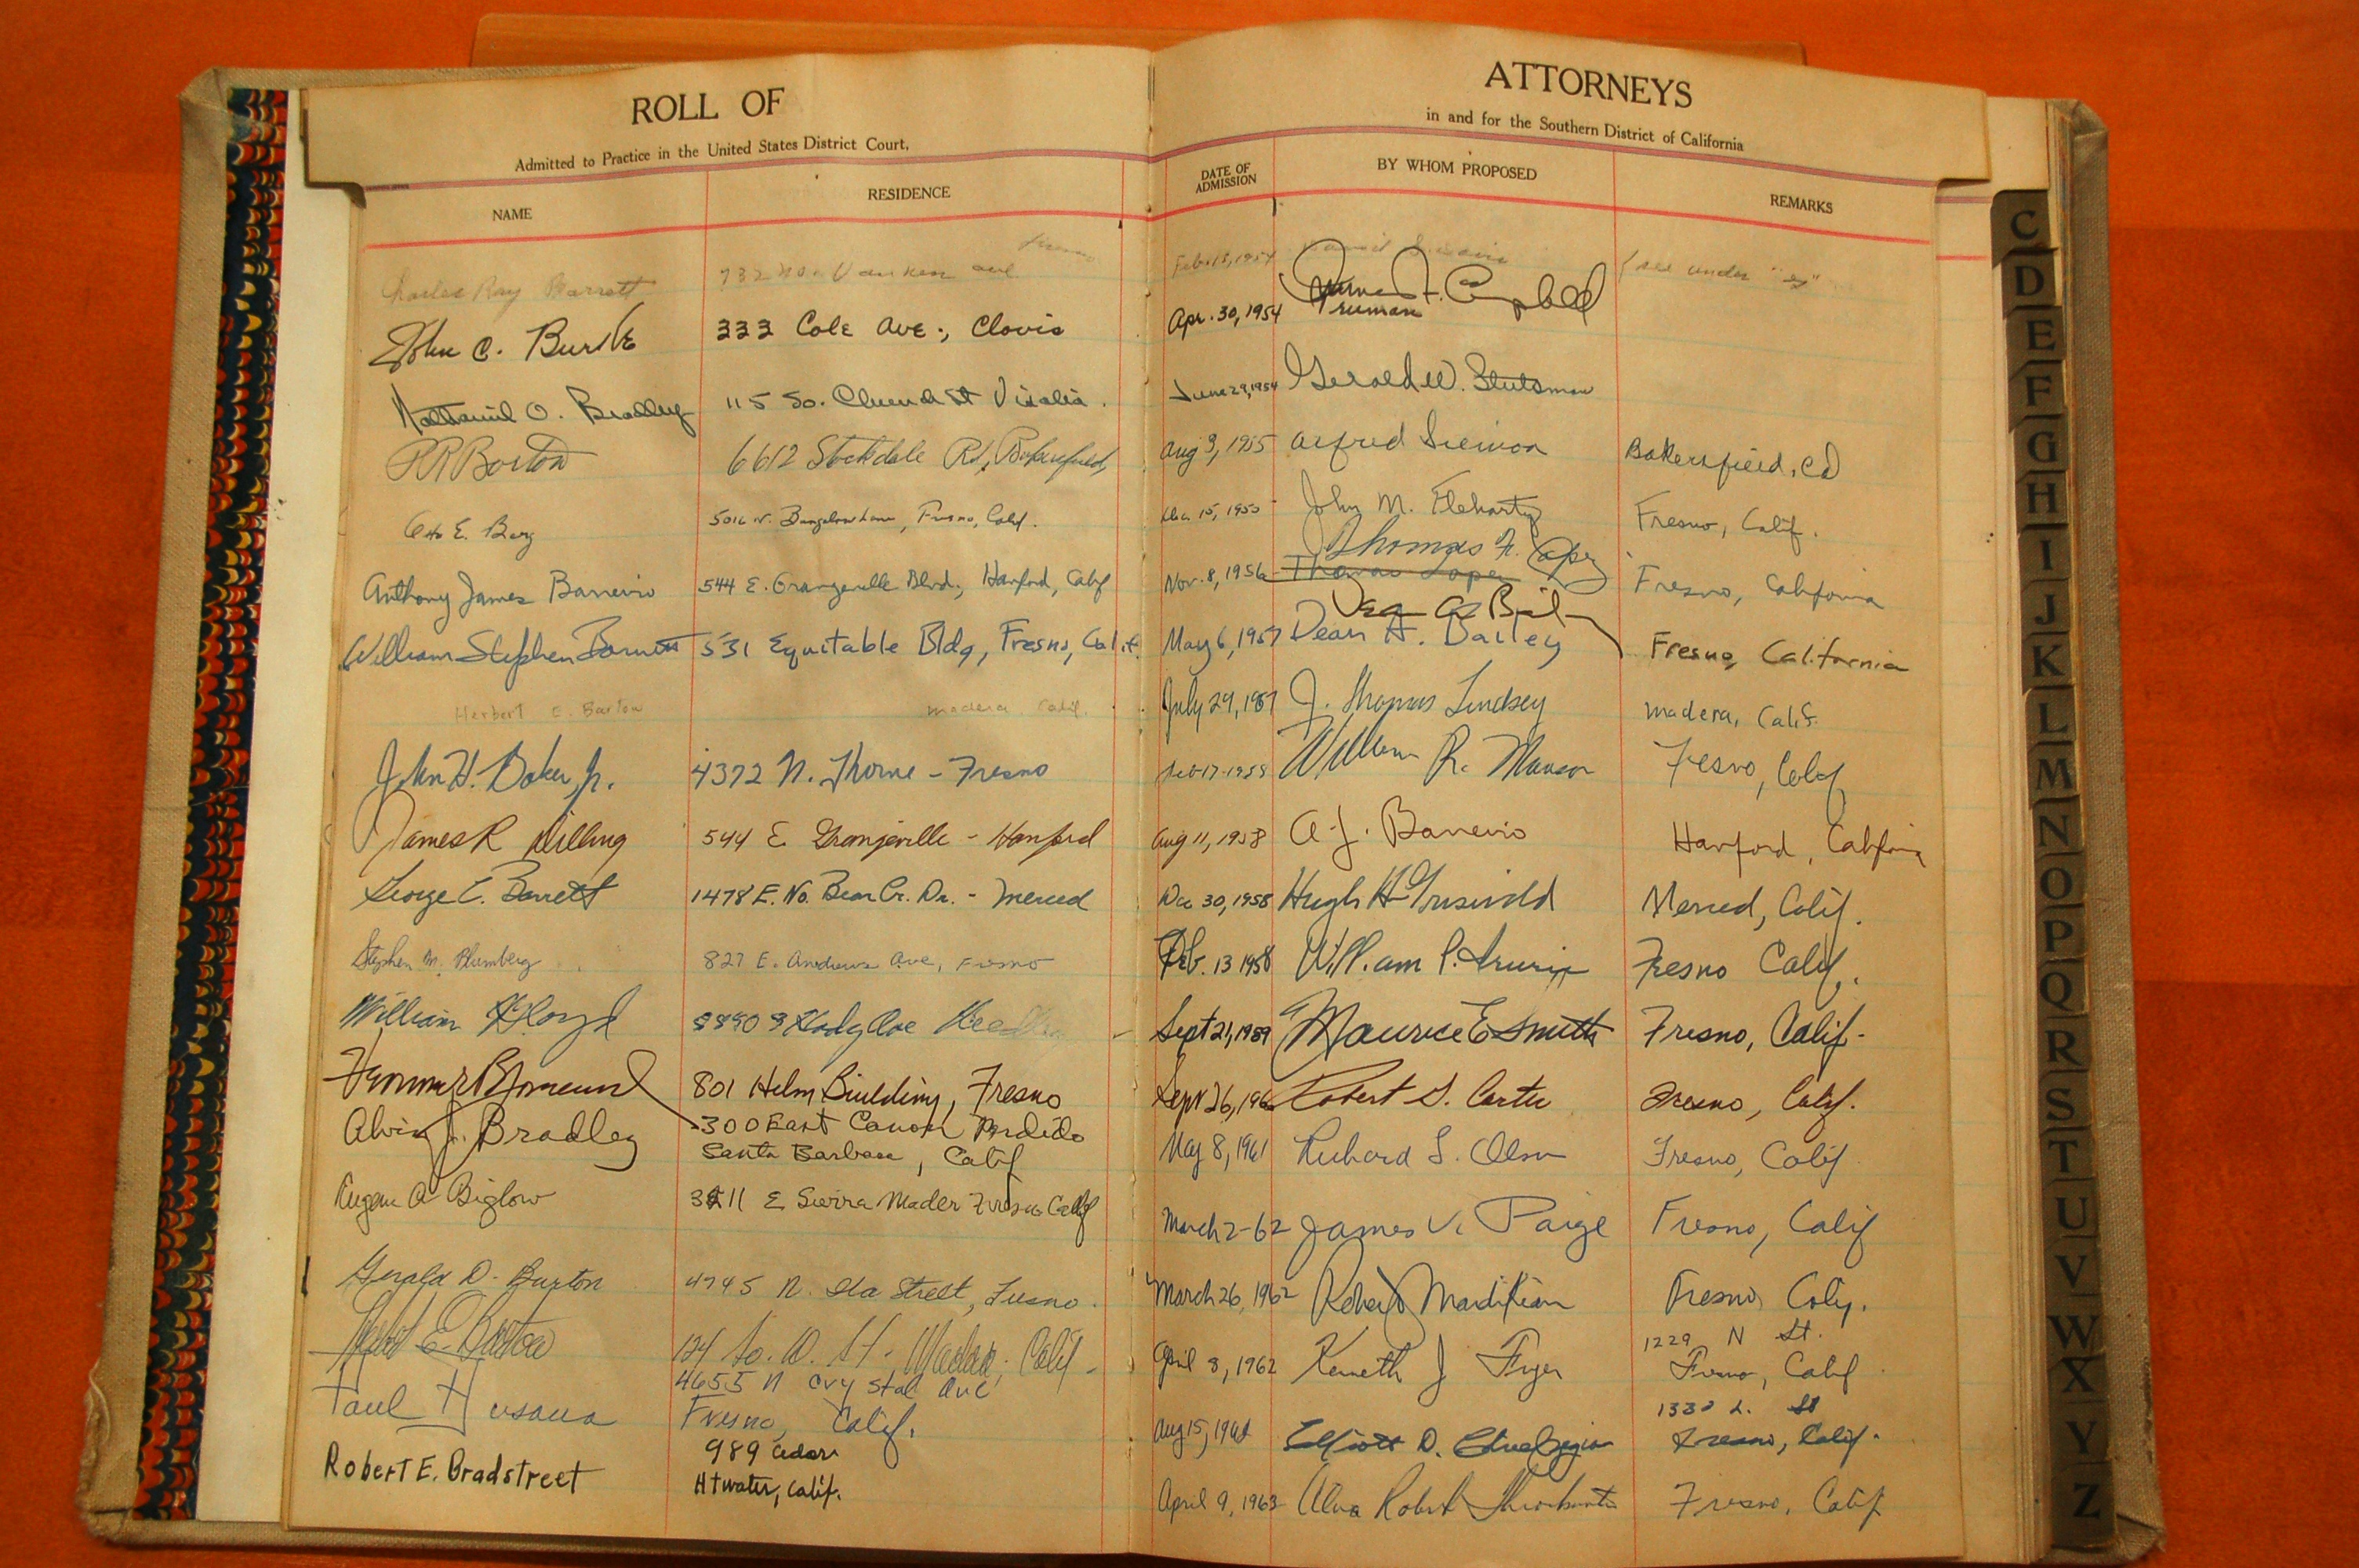 ROLL OF
Admitted to Practice in the United States District Court,
NAME RESIDENCE
Charles Ray Barrett 732 No. Van Ness ave Fresno
John C. Burke 333 Cole Ave., Clovis
Nathaniel O. Bradley 115 So. Church St Visalia.
R R Borton 6612 Stockdale Rd, Bakersfield,
Otto E. Berg 5016 N. Bungalow Lane, Fresno, Calif.
Anthony James Barreiro 544 E. Grangeville Blvd., Hanford, Calif
William Stephen Barnett 531 Equitable Bldg, Fresno, Calif.
Herbert E. Bartow Madera Calif.
John H. Baker, Jr. 4372 N. Thorne - Fresno
James R 544 E Grangeville - Hanford
George C. Barrett 1478 E. No. Bear Cr. Dr. - Merced
Stephen M. Blumberg 827 E. Andrews Ave, Fresno
William
801 Helm Building, Fresno
Alvin J. Bradley 300 East Canon Perdido
Santa Barbara, Calif
Eugene A Biglow E Sierra Madre Fresno Calif
Gerald D. Burton 4745 N. Street, Fresno.
E. Bartow 124 So. D. St. Madera, Calif -
4655 N Crystal Ave
Paul Fresno, Calif.
989 Cedar
Robert E. Bradstreet Atwater, Calif.
ATTORNEYS
in and for the Southern District of California
DATE OF ADMISSION BY WHOM PROPOSED REMARKS
Feb. 15, 1954 (see under "
Apr. 30, 1954 Campbell
Truman
June 29, 1954 Gerald W. Stutsman
Aug 9, 1955 Alfred Siemon Bakersfield, Ca
Dec. 15, 1955 John M. Fleharty Fresno, Calif.
Thomas F. Lopez
Nov. 8, 1956 Thomas Lopez Fresno, California
May 6, 1957 Dean A. Bailey Fresno, California
July 29, 1957 J. Thomas Lindsey Madera, Calif.
William R. Fresno, Calif
Aug 11, 1958 A. J. Barreiro Hanford, California
Dec 30, 1958 Hugh H Griswold Merced, Calif.
Feb. 13 1958 William P. Fresno Calif.
Sept 21, 1959 Maurice E Smith Fresno, Calif-
Sept 26, 1960 Robert S. Carter Fresno, Calif.
May 8, 1961 Richard S. Olson Fresno, Calif
March 2-62 James V. Paige Fresno, Calif
March 26, 1962 Robert Mardikian Fresno, Calif.
1229 N St.
April 8, 1962 Kenneth J Fryer Fresno, Calif
1330 L. St
Aug 15, Elliott D. Fresno, Calif.
April 9, 1963 Alva Robert Fresno, Calif
C
D
E
F
G
H
I
J
K
L
M
N
O
P
Q
R
S
T
U
V
W
X
Y
Z